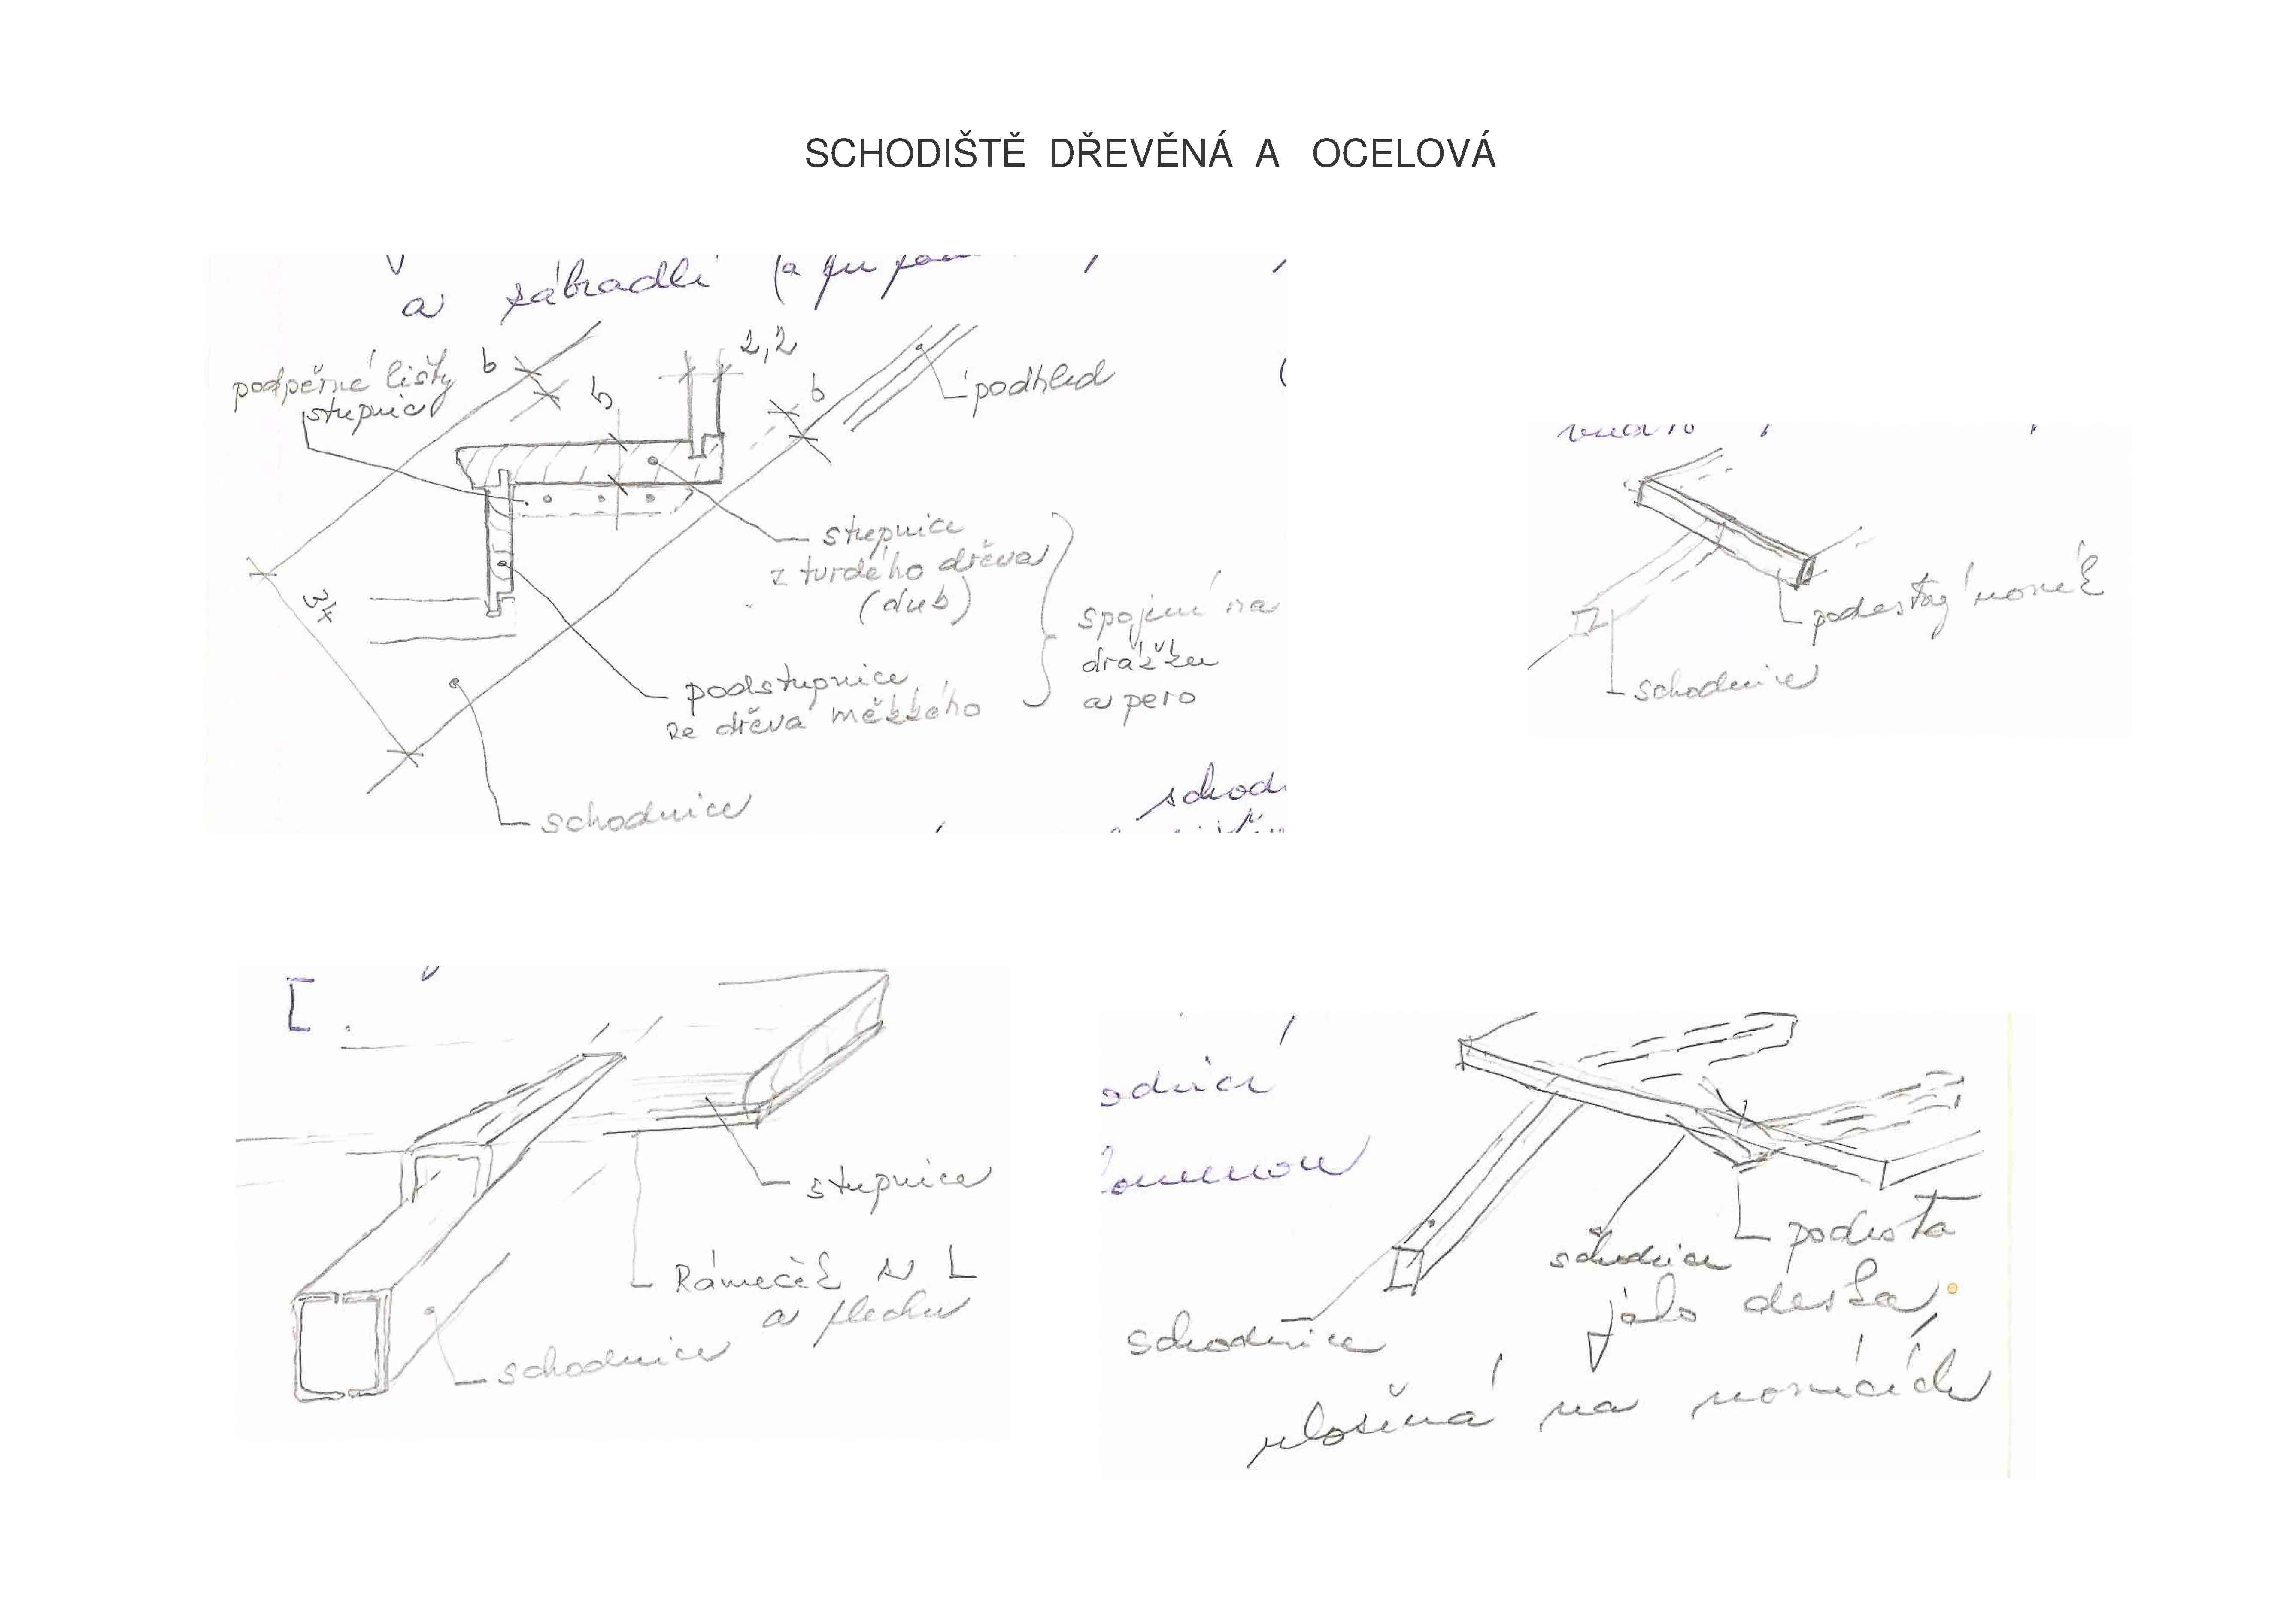 SCHODIŠTĚ DŘEVĚNÁ A OCELOVÁ
a zábradlí (a
podpěrné lišty
stupnic
b
b
2,2
b
podhled
34
stupnice
z tvrdého dřeva
(dub)
podstupnice
ze dřeva měkkého
spojení na
drážku
a pero
schodnice
schod
podestový nosník
schodnice
[ .
stupnice
Rámeček z L
a plechu
schodnice
odnicí
lomenou
schodnice
schodnice
podesta
jako deska,
uložená na nosnících